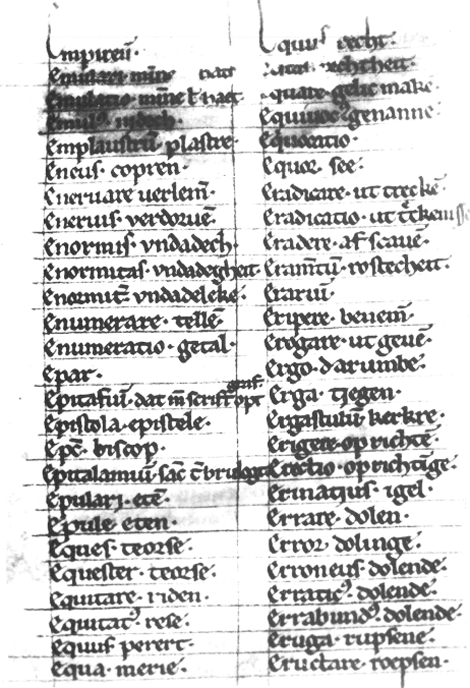 Empireū.
Emulari. mīne
Emulatio. mīne
Emulꝰ.
Emplaustrū. plastre.
Eneus. copren.
Eneruare uerlem̄.
Eneruis. verdoruē.
Enormis. vndadech.
Enormitas. vndadegheit.
Enormit̄. vndadeleke.
Enumerare. tellē.
Enumeratio. getal.
Epar.
graf.
Epitafiū. dat m̄ scrift opt
Epistola. epistele.
Ep̄c. biscop.
Epitalamiū. sāc
Epulari. etē.
Epule eten.
Eques teorse.
Equester teorse.
Equitare. riden.
Equitatꝰ. rese.
Equus perert.
Equa. merie.
Equus recht.
rechtheit.
Equare. gelic make
Equiuoc genanne
Equocatio.
Equor see.
Eradicare. ut trecke
Eradicatio. ut
Eradere. af scauē.
Eram̄tū. rostecheit.
Erariū.
Eripere. benem̄.
Erogare. ut geuē.
Ergo. darumbe.
Erga. tjegen.
Ergastulū kerkre.
Erigere. op richtē.
Erectio. op richtīge.
Erinatius. igel.
Errare. dolen.
Error dolinge.
Erroneus dolende.
Erraticꝰ. dolende.
Errabundꝰ. dolende
Eruga. rupsene.
Eructare. roepsen.